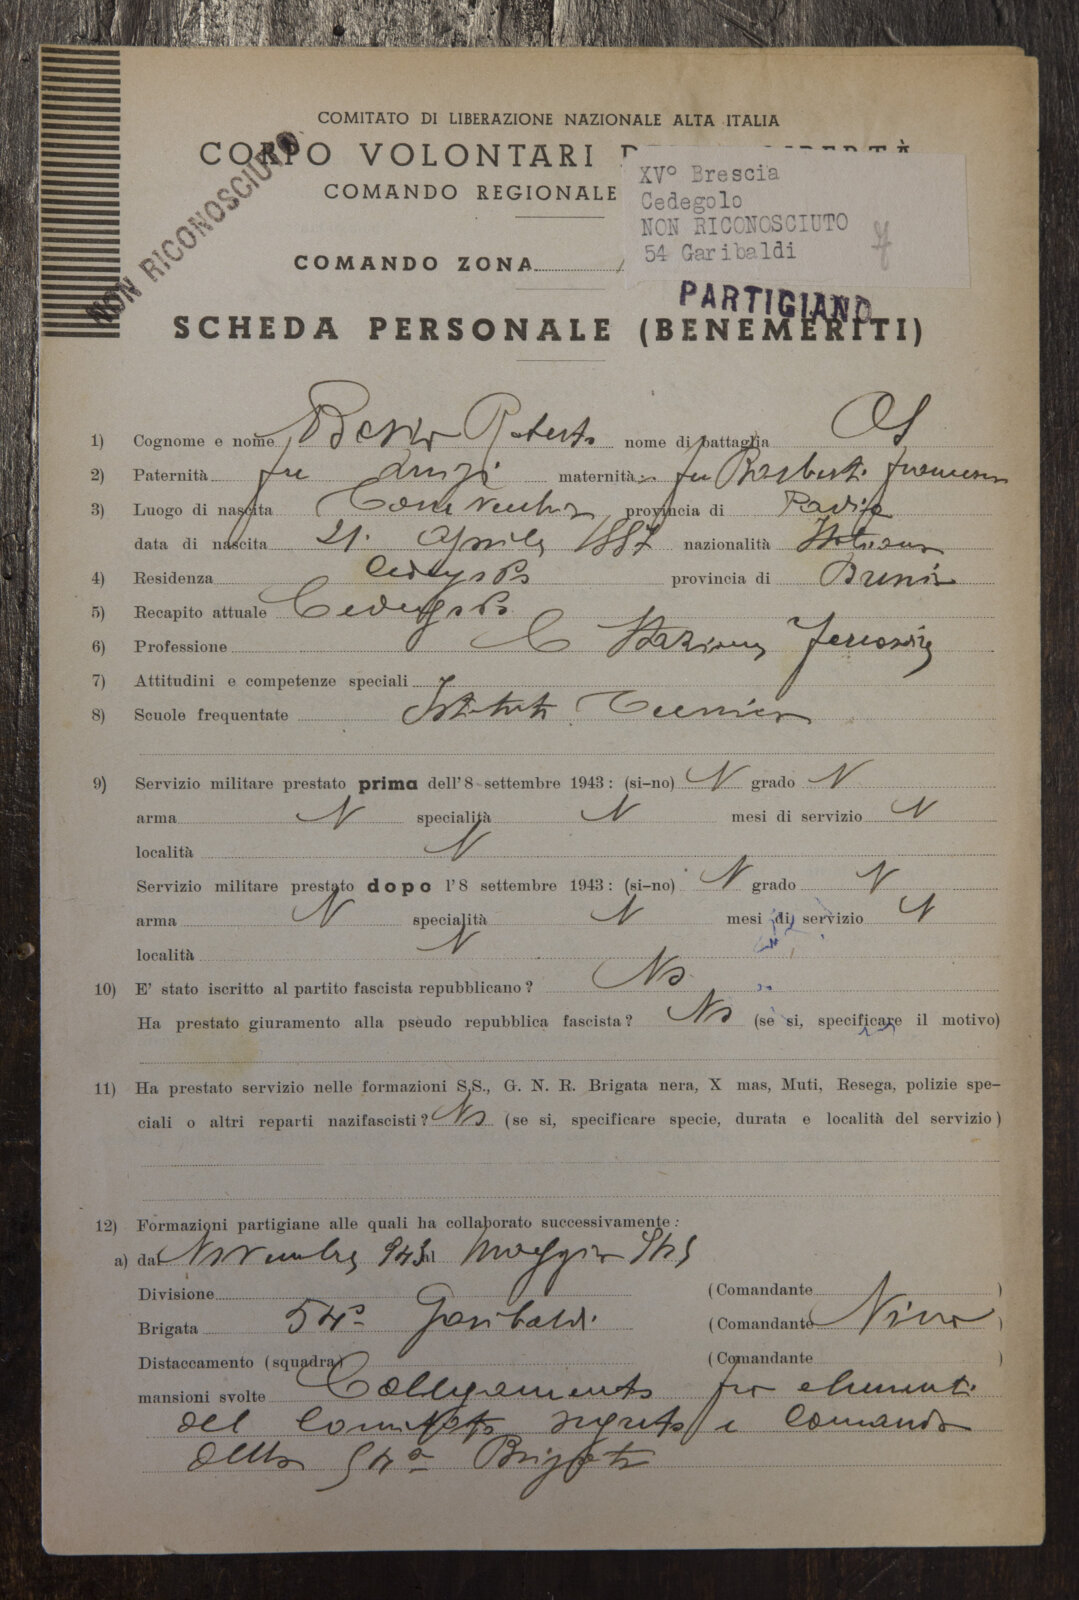 COMITATO DI LIBERAZIONE NAZIONALE ALTA ITALIA
CORPO VOLONTARI
COMANDO REGIONALE
NON RICONOSCIUTO
XV° Brescia
Cedegolo
NON RICONOSCIUTO
54 Garibaldi
COMANDO ZONA
PARTIGIANO
SCHEDA PERSONALE (BENEMERITI)
1) Cognome e nome Roberto nome di battaglia
2) Paternità fu Luigi maternità: fu Francesca
3) Luogo di nascita provincia di
data di nascita 21. Aprile 1887 nazionalità Italiana
4) Residenza Cedegolo provincia di Brescia
5) Recapito attuale Cedegolo
6) Professione C Stazione Ferrovia
7) Attitudini e competenze speciali
8) Scuole frequentate Istituto Tecnico
9) Servizio militare prestato prima dell'8 settembre 1943: (si-no) N grado N
arma N specialità N mesi di servizio N
località N
Servizio militare prestato dopo l'8 settembre 1943: (si-no) N grado N
arma N specialità N mesi di servizio N
località N
10) E' stato iscritto al partito fascista repubblicano? No
Ha prestato giuramento alla pseudo repubblica fascista? No (se si, specificare il motivo)
11) Ha prestato servizio nelle formazioni S.S., G. N. R. Brigata nera, X mas, Muti, Resega, polizie spe-
ciali o altri reparti nazifascisti? No (se si, specificare specie, durata e località del servizio)
12) Formazioni partigiane alle quali ha collaborato successivamente:
a) dal Novembre 943 al Maggio 945
Divisione (Comandante )
Brigata 54a Garibaldi (Comandante Nino )
Distaccamento (squadra) (Comandante )
mansioni svolte Collegamento fra elementi
del Comitato segreto e Comando
della 54a Brigata